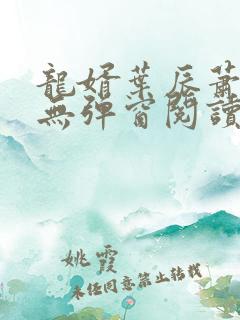 龍婿葉辰蕭
無彈窗閱讀
姚霞
未經同意禁止轉載